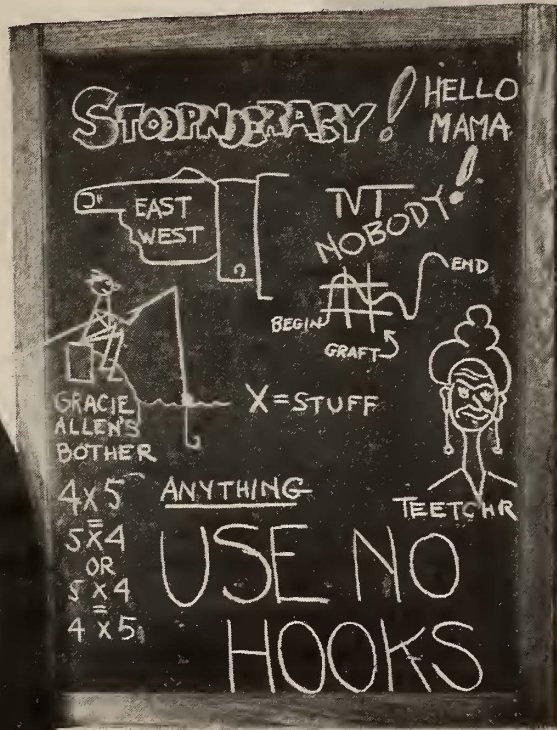 STOOPNOCRACY!
HELLO
MAMA
EAST
WEST
NOBODY!
BEGIN
END
GRAFT
GRACIE
ALLEN'S
BOTHER
X=STUFF
TEETCHR
4X5
=
5X4
OR
5X4
=
4X5
ANYTHING
USE NO
HOOKS